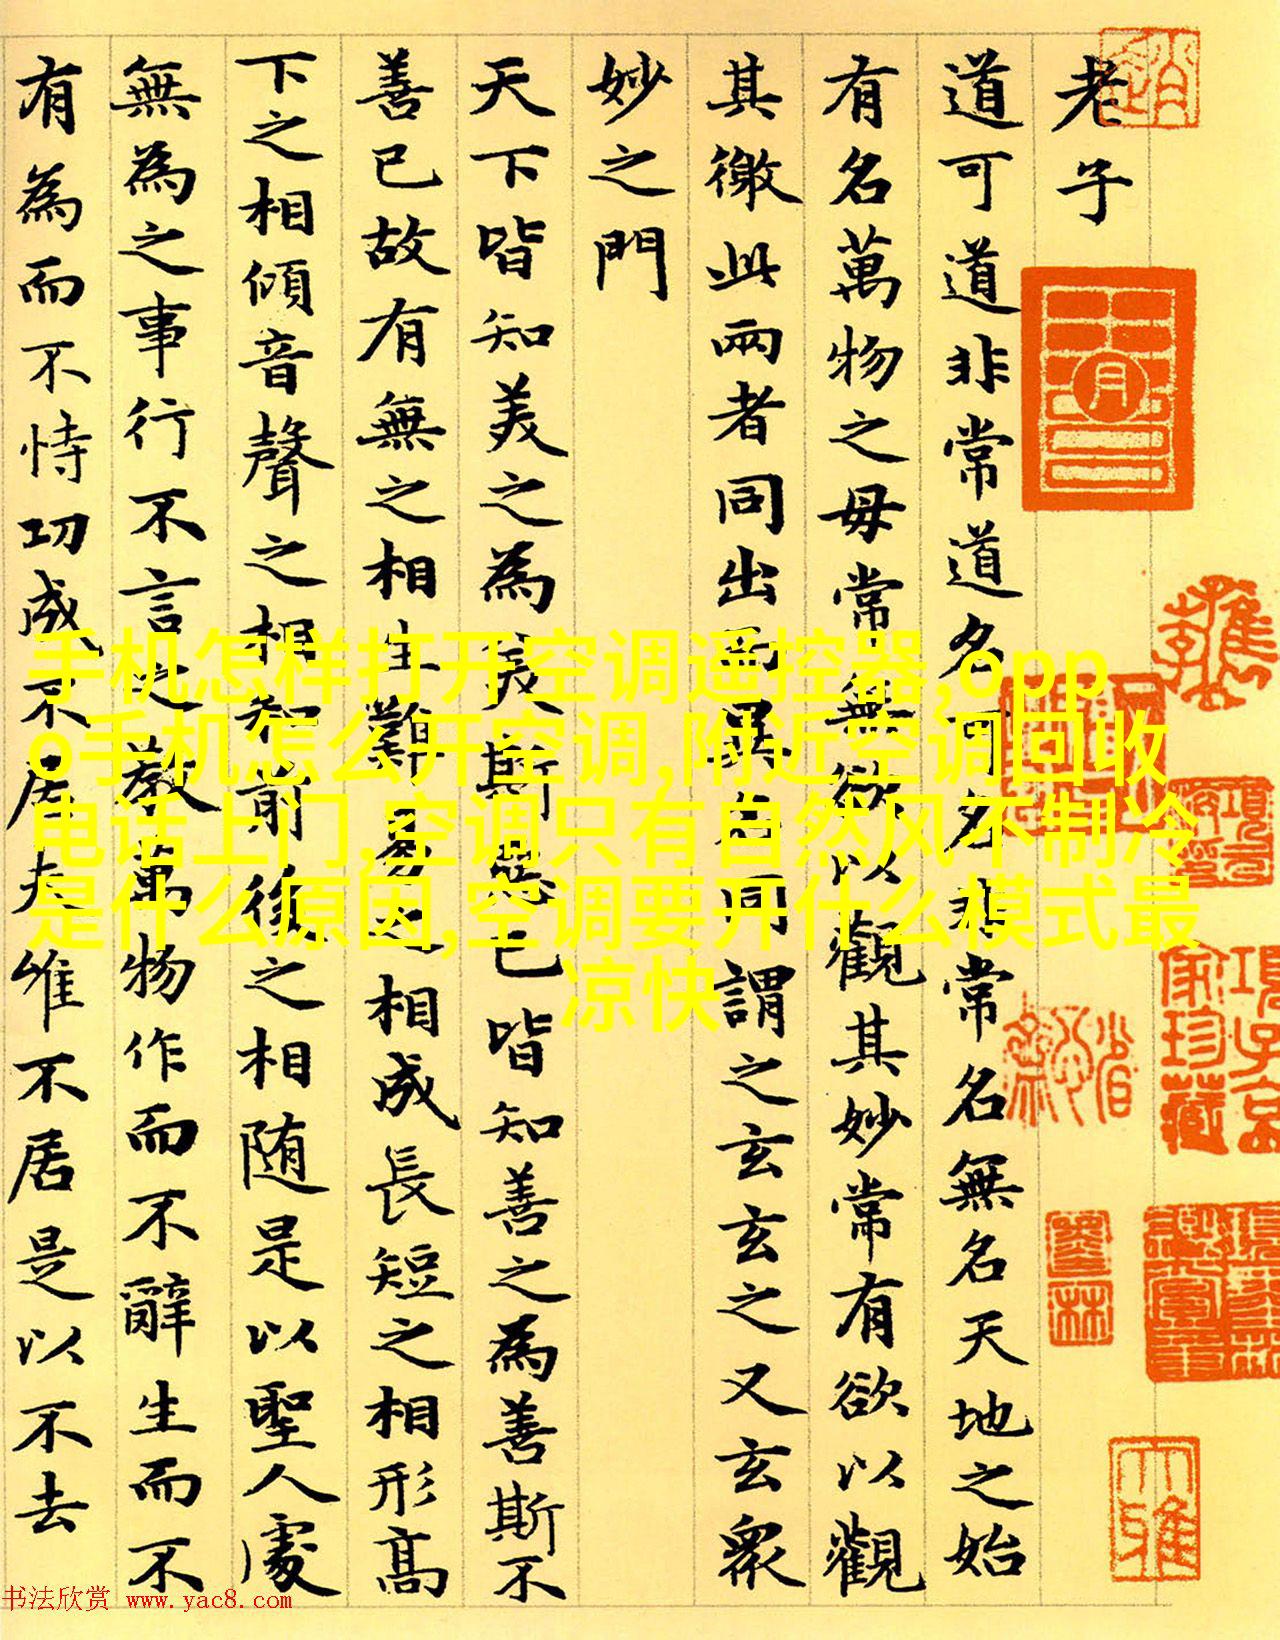 老子
道可道非常道名可名非常名無名天地之始
有名萬物之母常無欲以觀其妙常有欲以觀
其徼此兩者同出而異名同謂之玄玄之又玄衆
妙之門
天下皆知美之為美斯惡已皆知善之為善斯不
善已故有無之相生難易之相成長短之相形高
下之相傾音聲之相和前後之相随是以聖人處
無為之事行不言之教萬物作而不辭生而不
有為而不恃功成不居夫惟不居是以不去
手机怎样打开空调遥控器,opp
o手机怎么开空调,附近空调回收
电话上门,空调只有自然风不制冷
是什么原因,空调要开什么模式最
凉快
項子京
家珍藏
书法欣赏 www.yac8.com